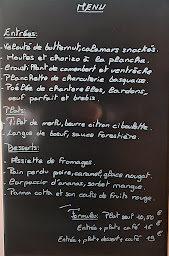 MENU
Entrées:
- Velouté de butternut, calamars snackés.
- Moules et chorizo à la plancha.
- Croustillant de camembert et ventrèche
- Planchette de charcuterie basquaise.
- Poêlée de chanterelles, lardons,
oeuf parfait et brebis.
Plats:
- Filet de merlu, beurre citron ciboulette.
- Langue de boeuf, sauce forestière.
Desserts:
- Assiette de fromages.
- Pain perdu poire, caramel, glace nougat.
- Carpaccio d'ananas, sorbet mangue.
- Panna cotta et son coulis de fruits rouge.
Formule: Plat seul 10,50 €
Entrée + plat + café 16 €
Entrée + plat + dessert + café 19 €